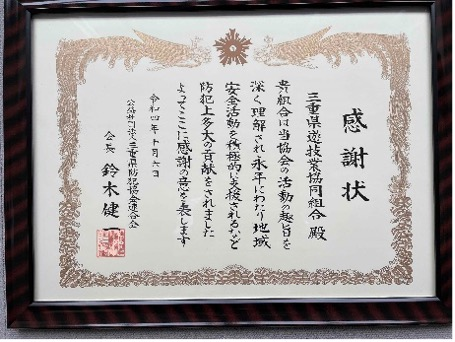 感謝状
三重県遊技業協同組合 殿
貴組合は当協会の活動の趣旨を
深く理解され永年にわたり地域
安全活動を積極的に支援されるなど
防犯上多大の貢献をされました
よってここに感謝の意を表します
令和四年十月六日
公益社団法人三重県防犯協会連合会
会長 鈴木健一